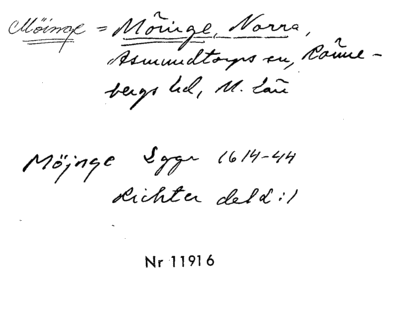 Möinge = Möinge, Norra,
Asmundtorps sn, Rönne-
bergs hd, M. län
Möjnge Lggr 1614-44
Richter del 2:1
Nr 11916